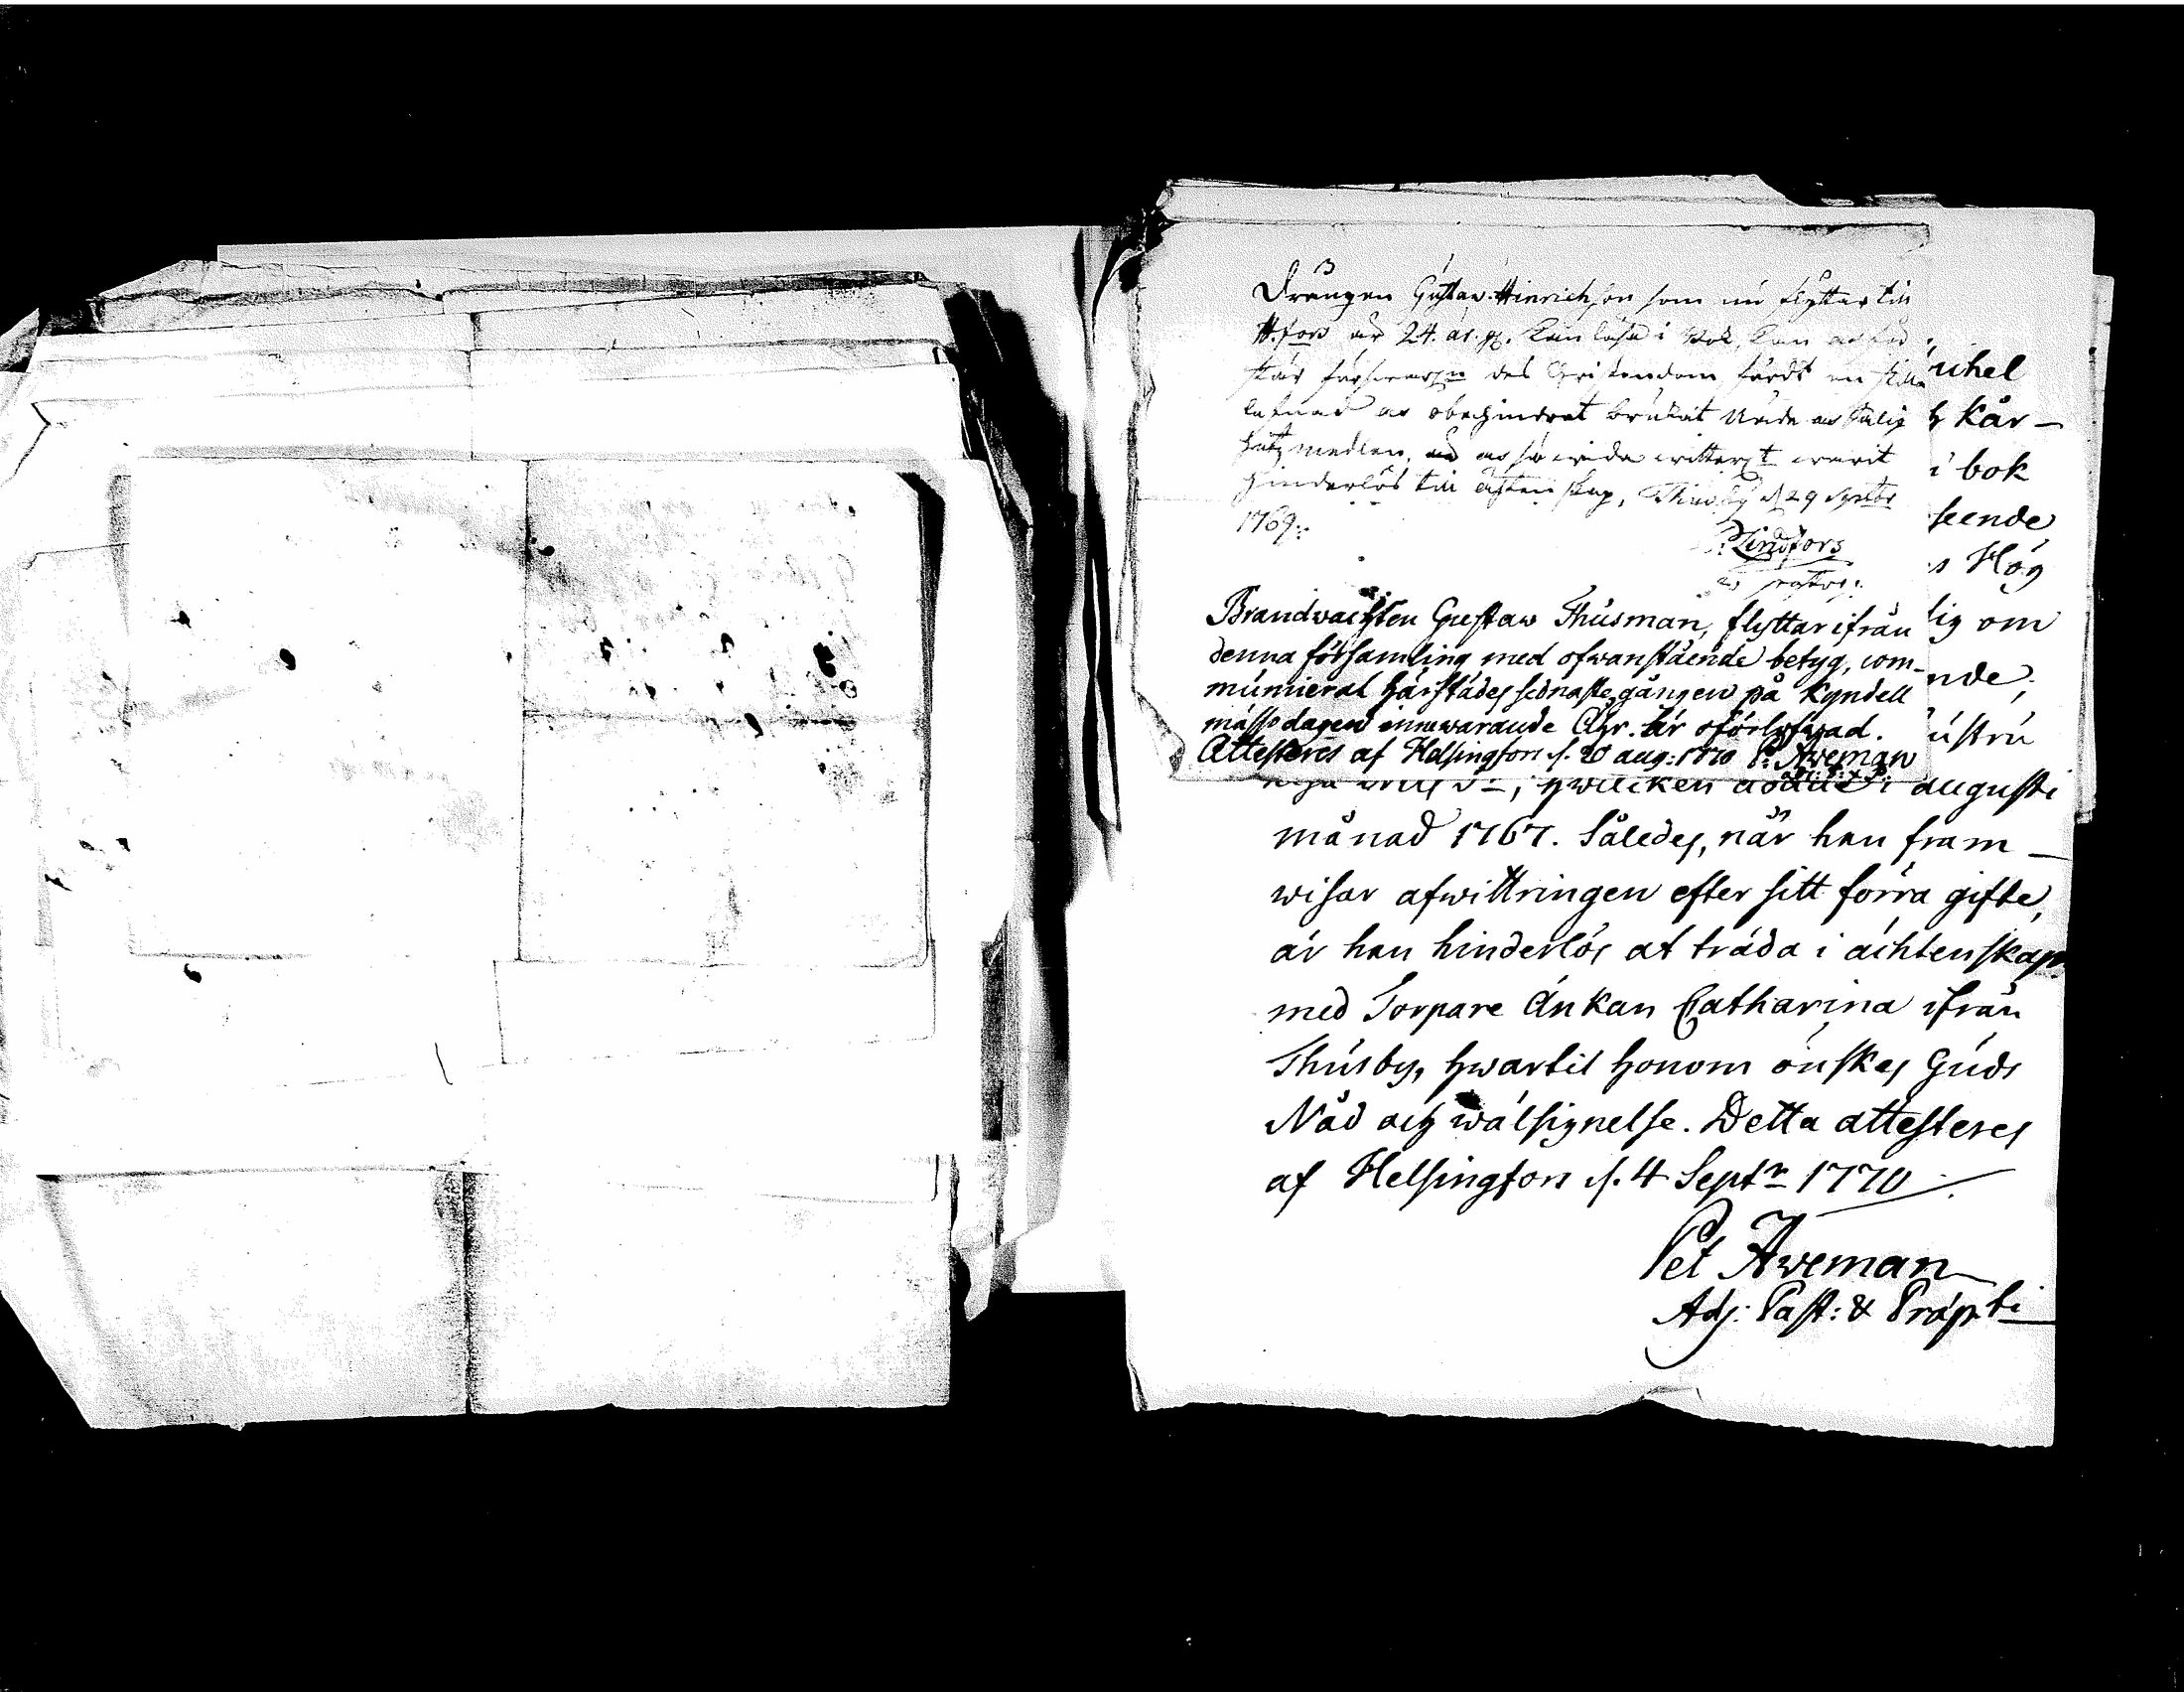 Drängen Gustaw Hinrichson som nu flyttar till
H:fors är 24. år g. kan läsa i Bok, kan
förswara des Christendom, fördt en stilla
lefnad av obehindrat brukat Nåde av Salig
hetz medlen, av så wida witterl:t warit
hinderlös till äcktenskap, Thusby d 29 Septbr
1769.
Lindfors
Brandwachten Gustaw Thusman, flyttar ifrån
denna församling med ofwanstående betyg, com-
municerat härstädes sednaste gången på Kyndell
mässo dagen innewarande Åhr. är oförlofwad.
Attesteres af Helsingfors d. 20 aug: 1770 P. Aweman
adj: P: & P:
uhel
h kår-
i bok
seende
s Hög
lig om
nde;
ustru
, hwilcken dödde i augusti
månad 1767. Således, når han fram-
wisar afwittringen efter sitt förra gifte,
är han hinderlös at träda i ächtenskap
med Torpare Änkan Catharina ifrån
Thusby, hwartil honom önskes Guds
Nåd och wälsignelse. Detta attesteres
af Helsingfors d. 4 Septr 1770
Pet Aweman
Adj: Past: & Präp:ti